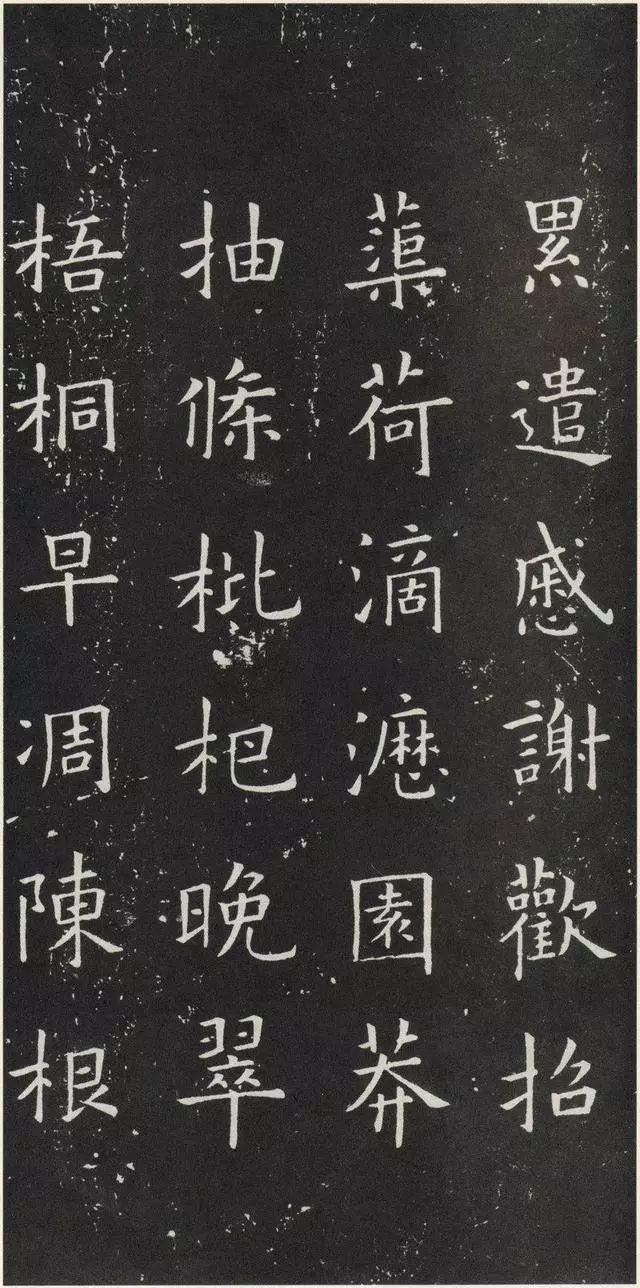 累遣慼謝歡招
蕖荷滴瀝園莽
抽條枇杷晚翠
梧桐早凋陳根